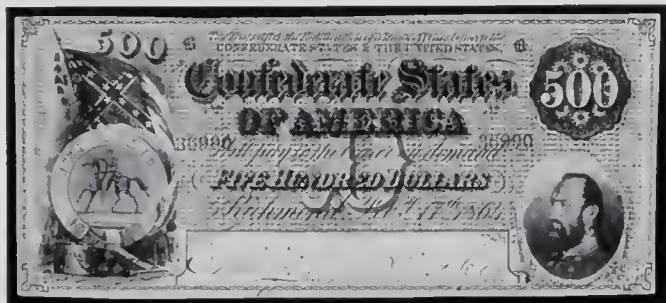 500
CONFEDERATE STATES & THE UNITED STATES,
Confederate States
500
OF AMERICA
36990 36990
Will pay to the bearer on demand
FIVE HUNDRED DOLLARS
Richmond Feb. 17th 1864